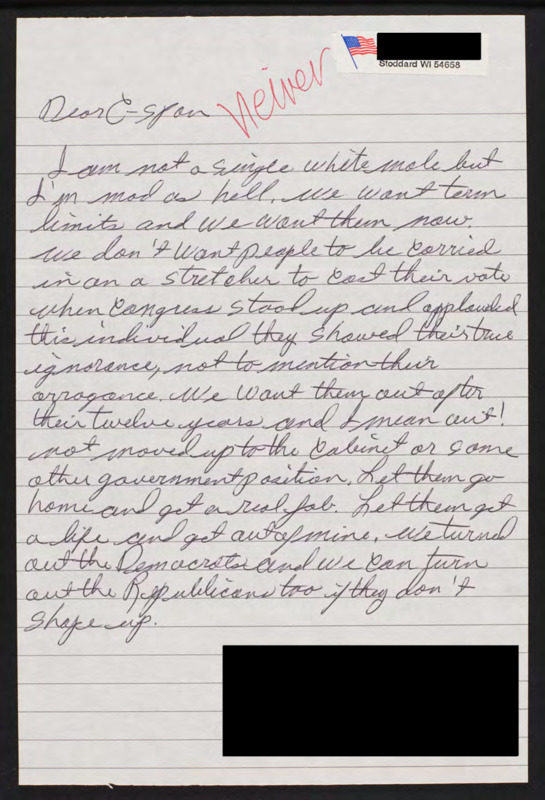 Stoddard WI 54658
neiver
Dear C-span
I am not a single white male but
I'm mad as hell. We want term
limits and we want them now.
We don't want people to be carried
in on a stretcher to cast their vote
when Congress stood up and applauded
this individual they showed their true
ignorance, not to mention their
arrogance. We want them out after
their twelve years and I mean out!
not moved up to the Cabinet or some
other government position. Let them go
home and get a real job. Let them get
a life and get out of mine. We turned
out the Democrats and we can turn
out the Republicans too if they don't
shape up.